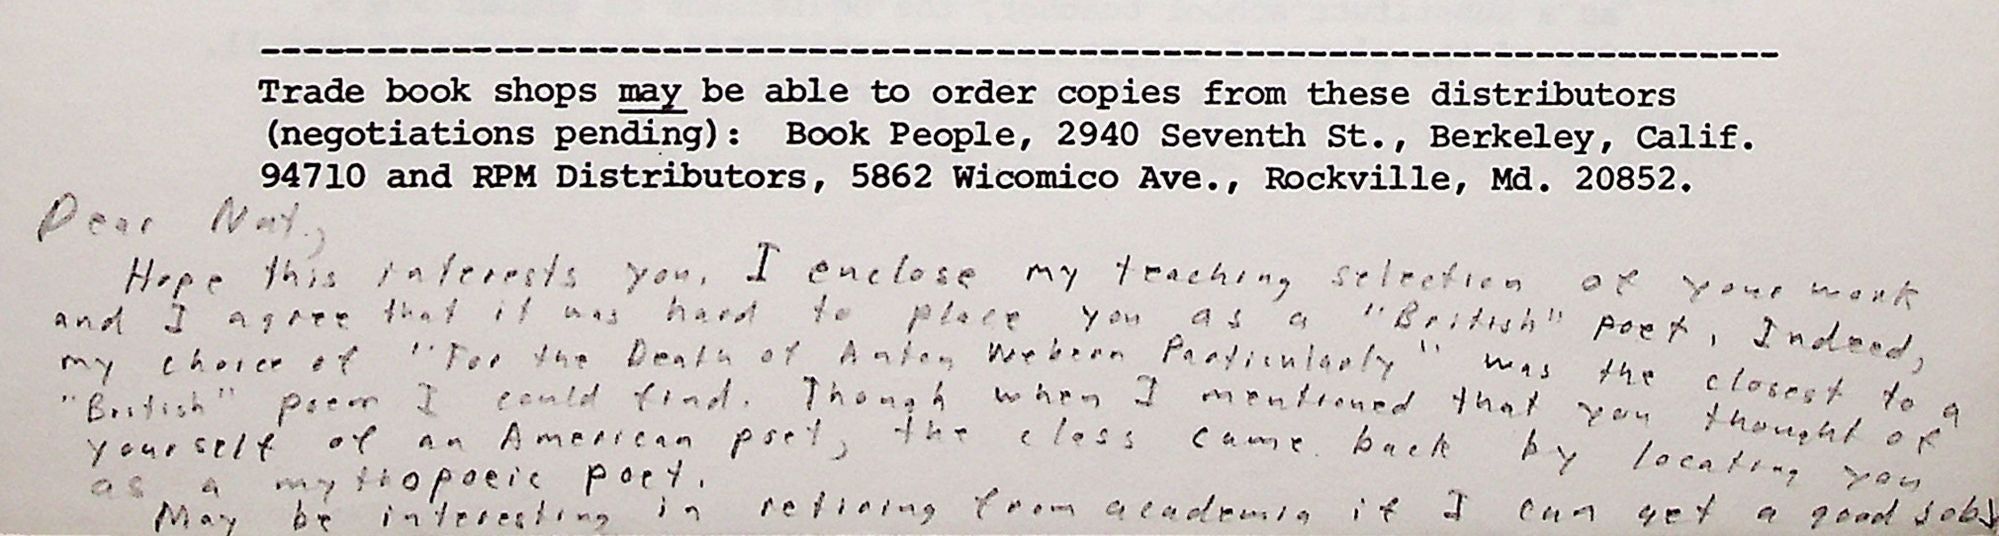 Trade book shops may be able to order copies from these distributors
(negotiations pending): Book People, 2940 Seventh St., Berkeley, Calif.
94710 and RPM Distributors, 5862 Wicomico Ave., Rockville, Md. 20852.
Dear Nat.,
Hope this interests you. I enclose my teaching selection of your work
and I agree that it was hard to place you as a "British" poet. Indeed,
my choice of "For the Death of Anton Webern Particularly" was the closest to a
"British" poem I could find. Though when I mentioned that you thought of
yourself of an American poet, the class came back by locating you
as a mythopoeic poet.
May be interesting in retiring from academia if I can get a good job